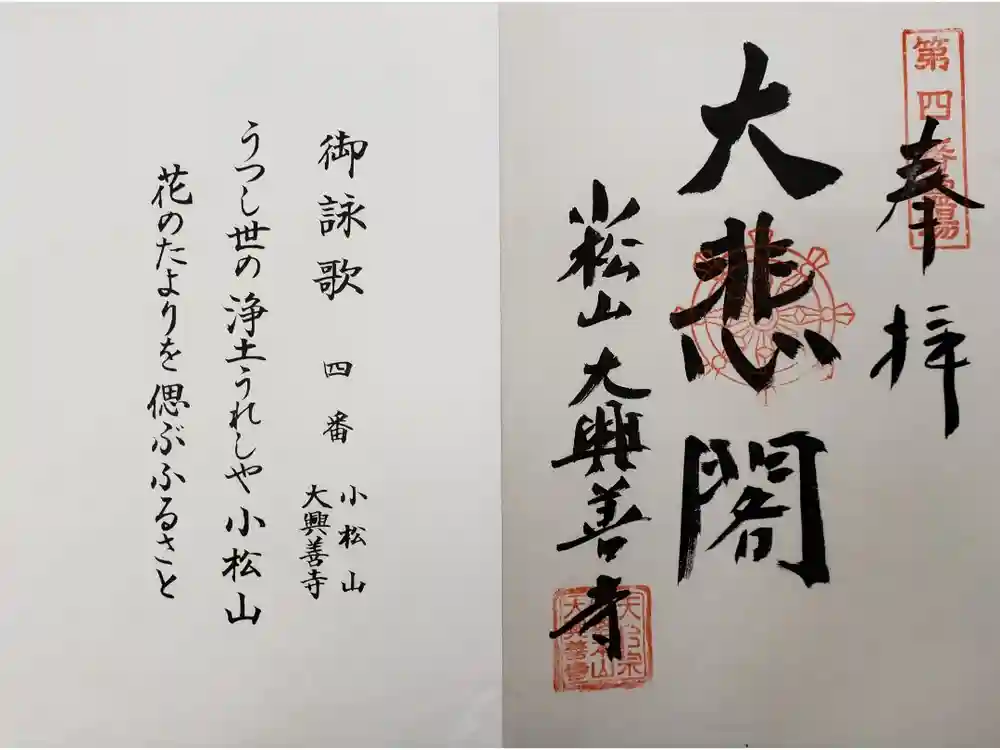 第四番霊場
奉拝
大悲閣
小松山大興善寺
天台宗
大興善寺
御詠歌 四番 小松山
大興善寺
うつし世の浄土うれしや小松山
花のたよりを偲ぶふるさと